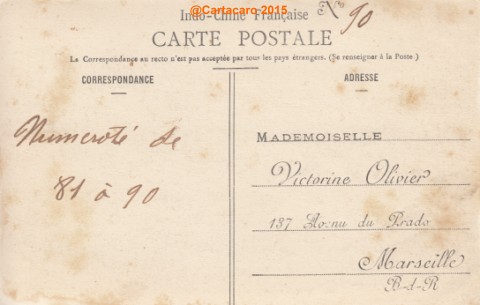 @Cartacaro 2015
Indo-Chine Française
No 90
CARTE POSTALE
La Correspondance au recto n'est pas acceptée par tous les pays étrangers. (Se renseigner à la Poste.)
CORRESPONDANCE
ADRESSE
Numeroté de
81 à 90
MADEMOISELLE
Victorine Olivier
137 Avenu du Prado
Marseille
B-d-R